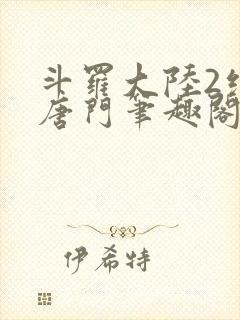 斗羅大陸2絕
唐門筆趣閣
伊希特